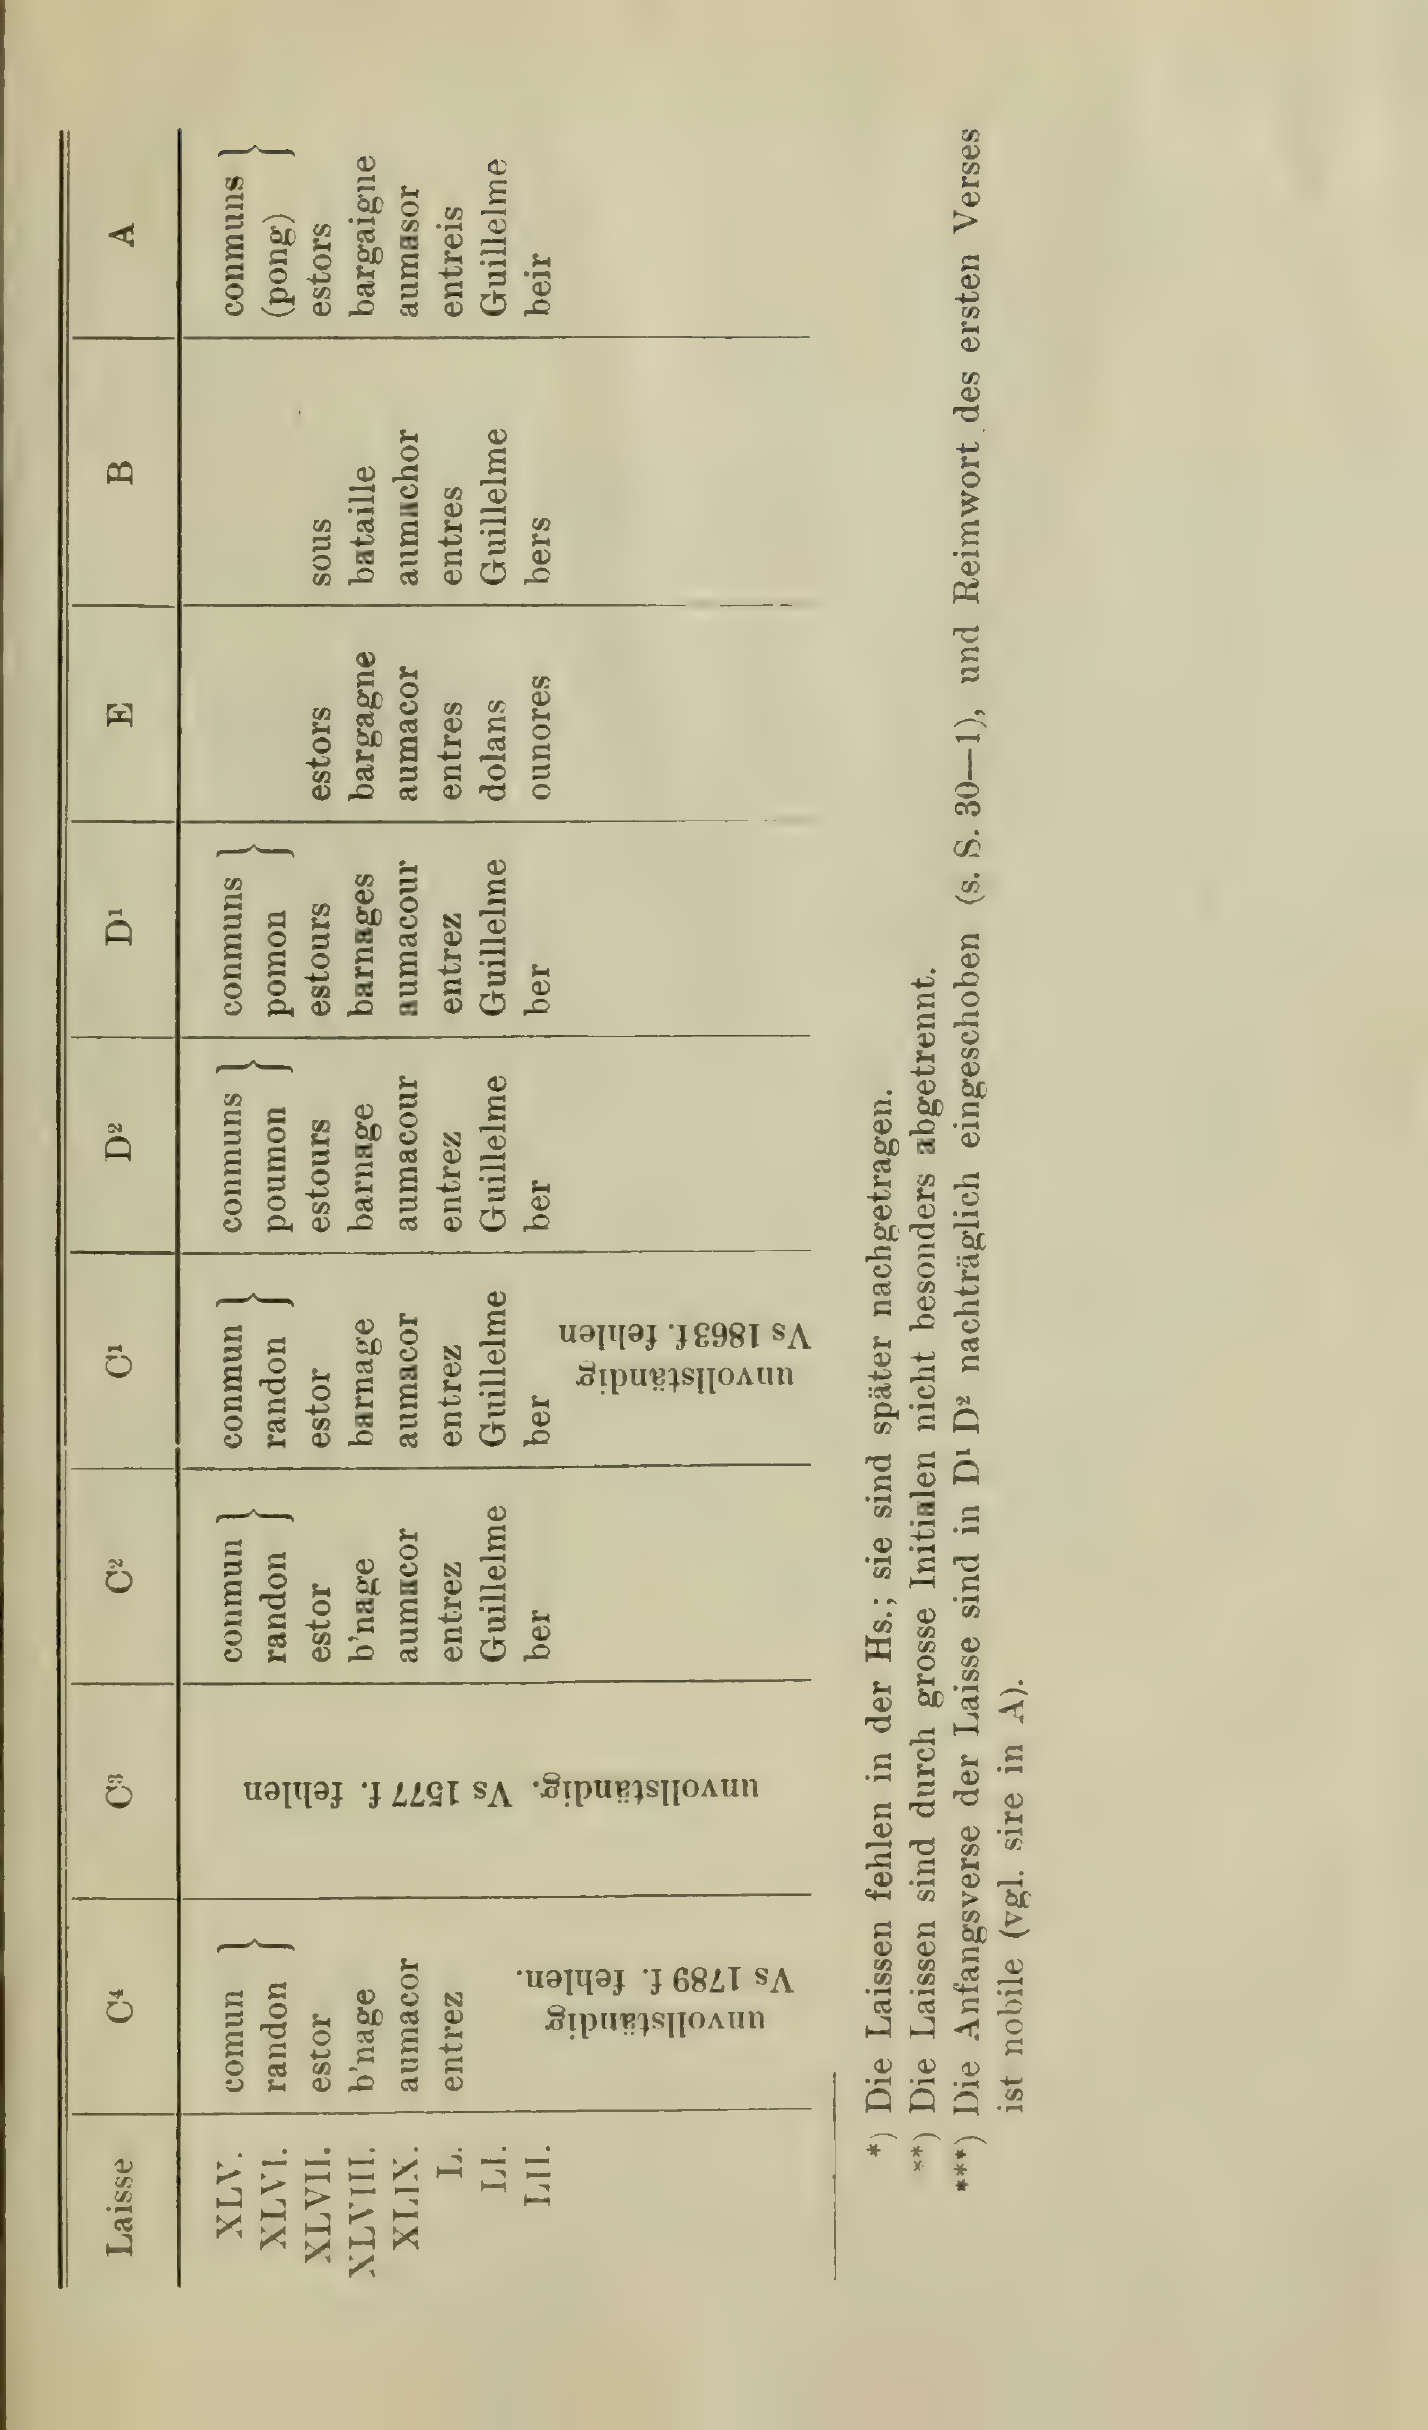 Laisse C⁴ C³ C² C¹ D² D¹ E B A
XLV. comun conmun conmun conmuns conmuns conmuns
XLVI. randon randon randon poumon pomon (pong)
XLVII. estor estor estor estours estours estors sous estors
XLVIII. b'nage b'nage barnage barnage barnages bargagne bataille bargaigne
XLIX. aumacor aumacor aumacor aumacour aumacour aumacor aumachor aumasor
L. entrez entrez entrez entrez entrez entres entres entreis
LI. Guillelme Guillelme Guillelme Guillelme dolans Guillelme Guillelme
LII. ber ber ber ber ounores bers beir
unvollständig
Vs 1789 f. fehlen.
unvollständig. Vs 1577 f. fehlen
unvollständig
Vs 1863 f. fehlen
*) Die Laissen fehlen in der Hs.; sie sind später nachgetragen.
**) Die Laissen sind durch grosse Initialen nicht besonders abgetrennt.
***) Die Anfangsverse der Laisse sind in D¹ D² nachträglich eingeschoben (s. S. 30—1), und Reimwort des ersten Verses
ist nobile (vgl. sire in A).